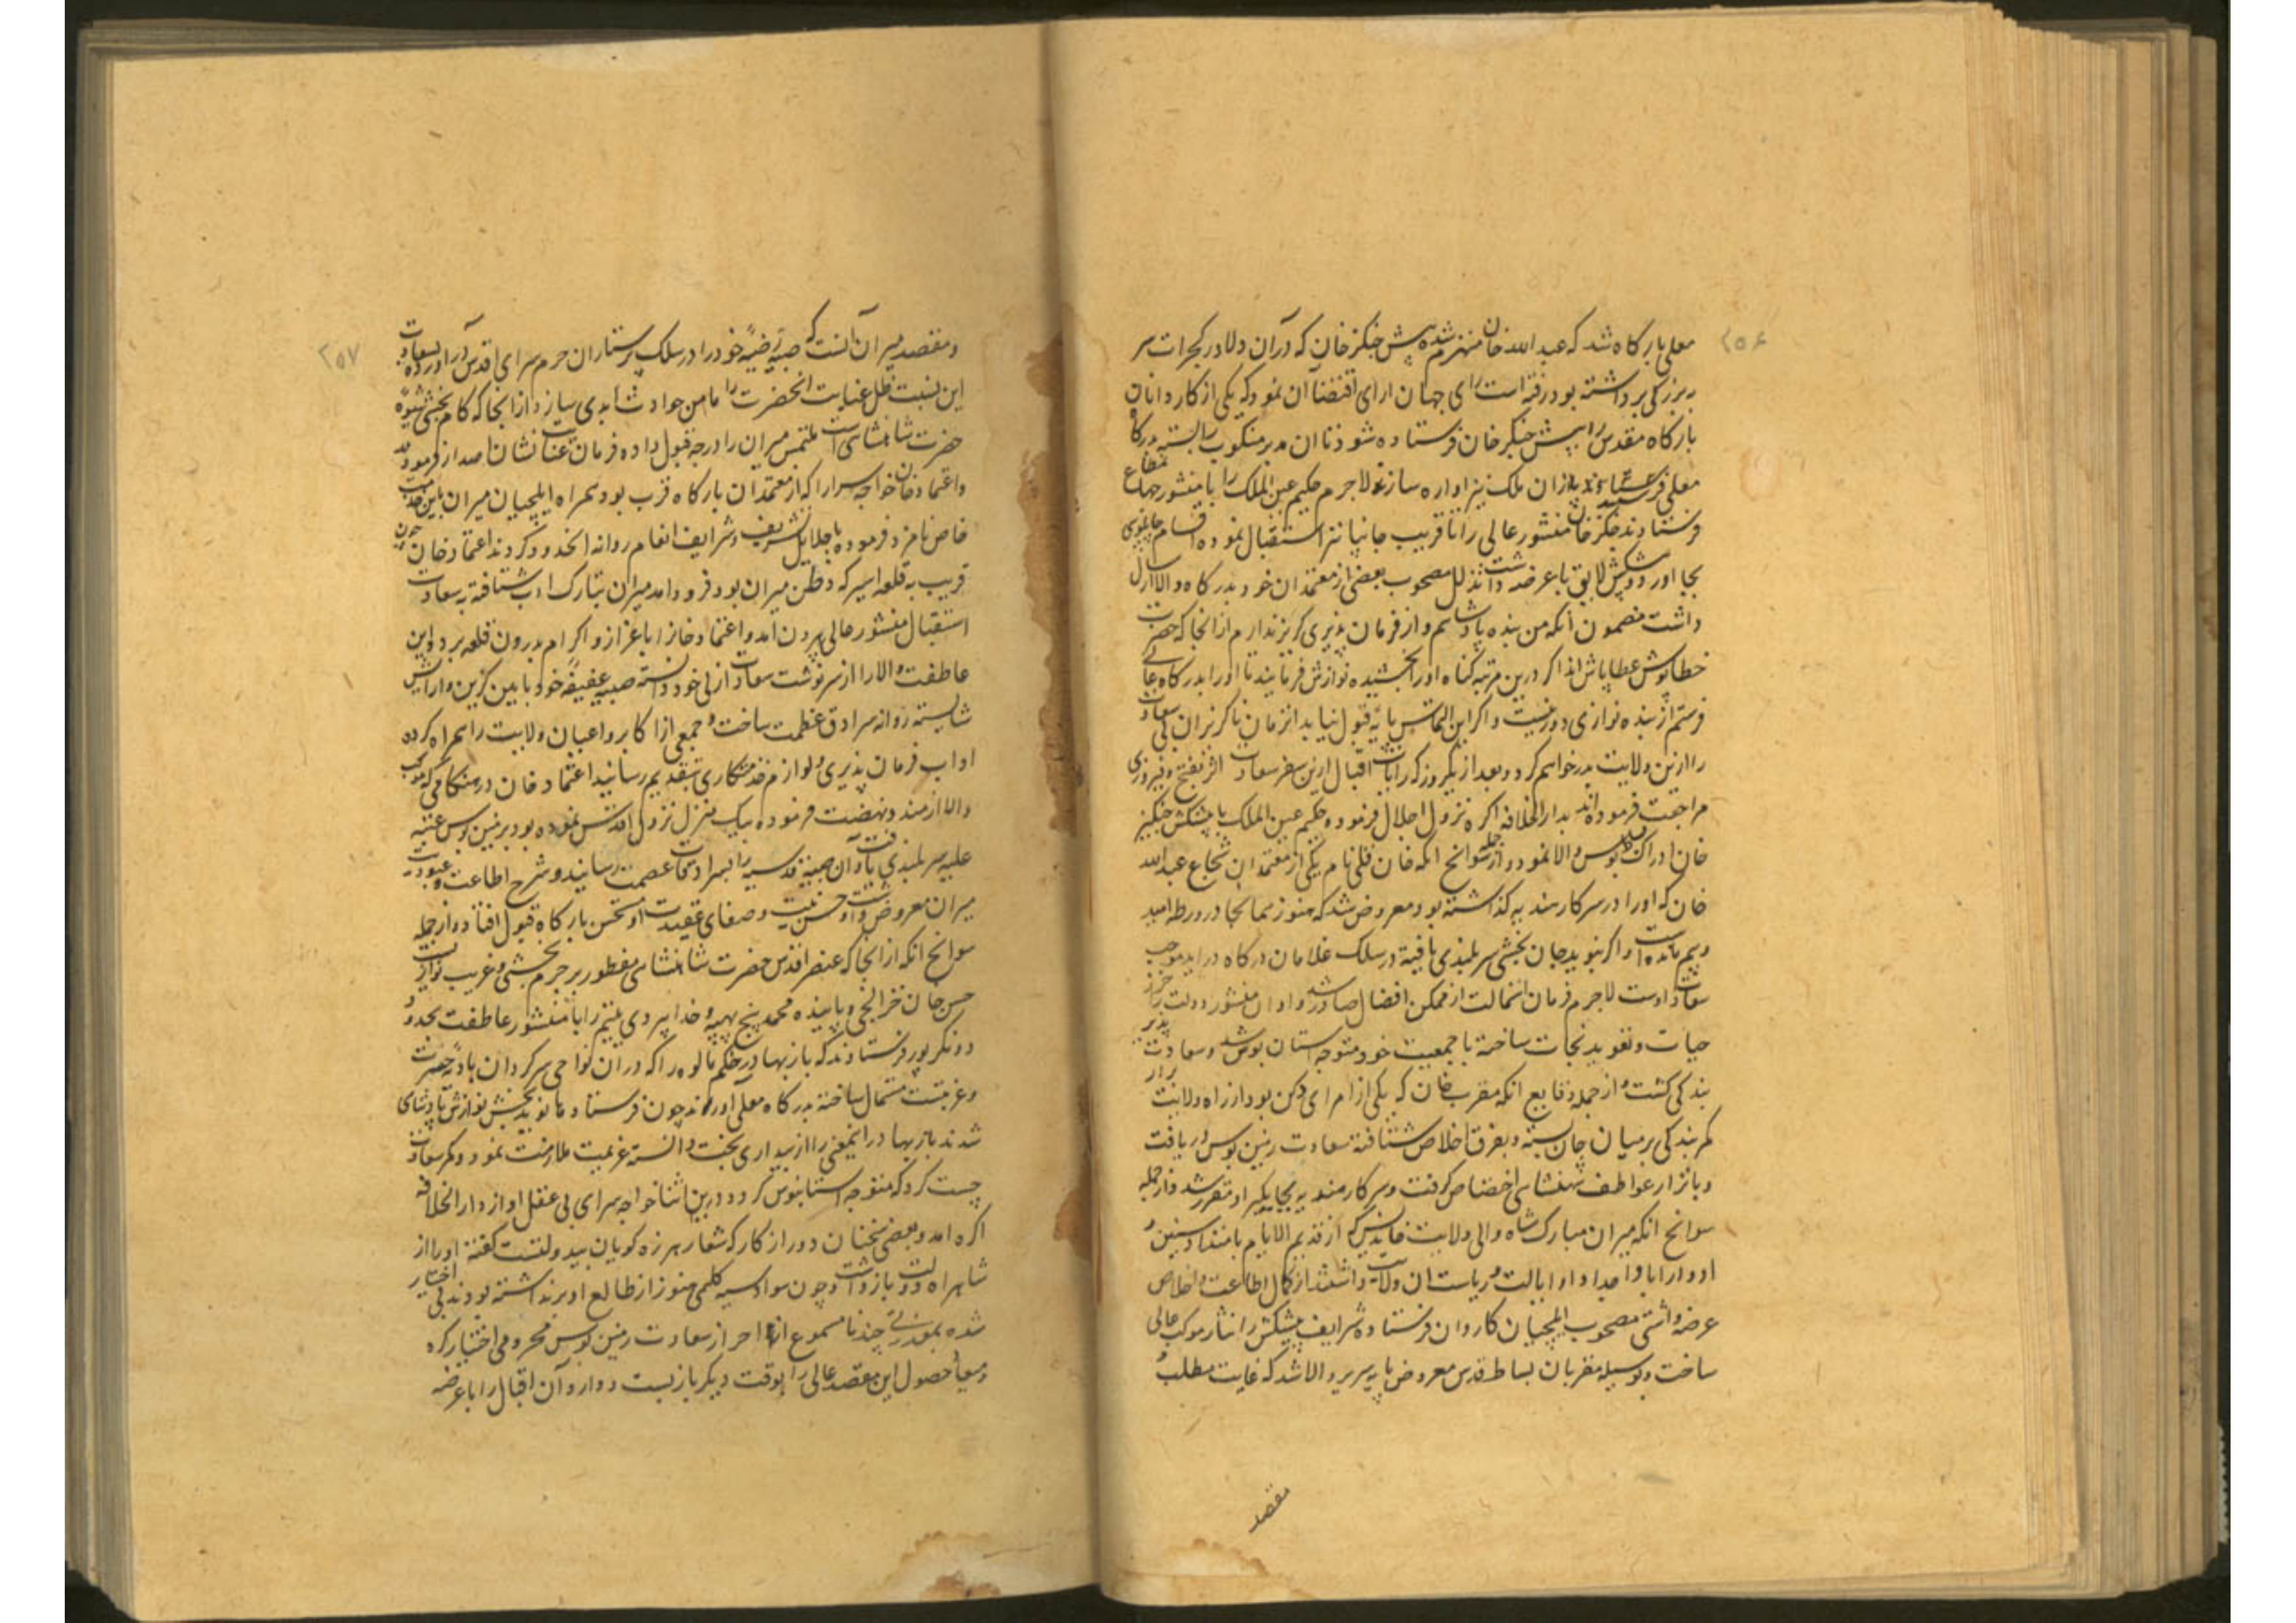 ۲۵۶
معلی بارگاه شد که عبدالله خان منهزم شده پیش چنگز خان که در آن ولا در کجرات سر
ببزرکی برداشته بود رفته است رای جهان ارای اقتضا آن نمود که یکی از کاردانان
بارکاه مقدس را پیش چنکز خان فرستاده شود تا ان مدبر منکوب را بسته بدرکاه
معلی فرستد یا از ان ملک نیز اواره سازند لاجرم حکیم عین الملک را با منشور جهانمطاع
فرستادند چنکز خان منشور عالی را تا قریب جانپانیر استقبال نموده اقسام چاپلوسی
بجا اورد و پیشکش لایق با عرضه داشت تذلل مصحوب بعضی از معتمدان خود بدرکاه والا ارسال
داشت مضمون آنکه من بنده پادشاهم و از فرمان پذیری کریز ندارم از انجا که حضرت
خطاپوش عطاپاش اند اکر درین مرتبه کناه او را بخشیده نوازش فرمایند تا او را بدرکاه عالی
فرستم از بنده نوازی دور نیست و اکر این التماس بپایه قبول نیاید انزمان ناکزیر ان بی سعادت
را ازین ولایت بدر خواهم کرد و بعد از یکروز که رایات اقبال ازین سفر سعادت اثر بفتح و فیروزی
مراجعت فرموده اند بدارالخلافه اکره نزول اجلال فرمود و حکیم عین الملک با پیشکش چنکیز
خان ادراک بوس والا نمود و از جمله سوانح انکه خان قلی نام یکی از معتمدان شجاع عبدالله
خان که او را در سرکار هندیه کذاشته بود معروض شد که هنوز همانجا در ورطه امید
و بیم مانده است و اکر بنوید جان بخشی سربلندی یافته در سلک غلامان درکاه در اید موجب
سعادت اوست لاجرم فرمان استمالت از ممکن افضال صادر شد و او ان منشور دولت را حرز
حیات و تعوید نجات ساخته با جمعیت خود متوجه استان بوس شد و سعادت پذیر
بندکی کشت و از جمله وقایع انکه مقرب خان که یکی از امرای دکن بود از راه ولایت برار
کمر بندکی بر میان جان بسته و بفرق اخلاص شتافته سعادت زمین بوس دریافت
و بانزار عواطف شهنشاهی اختصاص کرفت و سرکار هندیه بجایکیر او مقرر شد و از جمله
سوانح انکه میران مبارک شاه والی ولایت خاندیس که از قدیم الایام بامتداد سنین و
ادوار ابا و اجداد او ایالت و ریاست ان ولایت داشتند از کمال اطاعت و اخلاص
عرضه داشتی مصحوب ایلچیان کاردان فرستاده شرایف پیشکش را نثار موکب عالی
ساخت و بوسیله مقربان بساط قدس معروض پایه سریر والا شد که غایت مطلب و
مقصد
۲۵۷
و مقصد میران آنست که صبیه رضیه خود را در سلک پرستاران حرم سرای اقدس در اورده بسعادت
این نسبت ظل عنایت انحضرت را مامن حوادث ابدی سازد از انجا که کام بخشی شیوه
حضرت شاهنشاهی است ملتمس میران را درجه قبول داده فرمان عنایت نشان اصدار فرمودند
و اعتماد خان خواجه سرا را که از معتمدان بارکاه قرب بود همراه ایلچیان میران باین خدمت
خاص نامزد فرموده با جلایل تشریف و شرایف انعام روانه انحدود کردند اعتماد خان چون
قریب به قلعه اسیر که وطن میران بود فرود امد میران بتبارک ادب شتافته بسعادت
استقبال منشور عالی بیرون امد و اعتماد خان را با عزاز و اکرام بدرون قلعه برد و این
عاطفت والا را از سرنوشت سعادت ازلی خود دانسته صبیه عفیفه خود بایین کزین و ارایش
شایسته روانه سرادق عظمت ساخت و جمعی از اکابر و اعیان ولایت را همراه کرده
اداب فرمان پذیری و لوازم خدمتکاری بتقدیم رسانید اعتماد خان در هنکامی که موکب
والا از مندو نهضت فرموده بیک منزل نزول اقدس نموده بود بزمین بوس عتبه
علیه سربلندی یافت و آن صبیه قدسیه را بسرادقات عصمت رسانید و شرح اطاعت و عبودیت
میران معروض داشت و حسن نیت و صفای عقیدت او مستحسن بارکاه قبول افتاد و از جمله
سوانح انکه از انجا که عنصر اقدس حضرت شاهنشاهی مفطور بر جرم بخشی و غریب نوازیست
حسن خان خزانچی و پاینده محمد پنج بهیه و خدا بردی یتیم را با منشور عاطفت بحدود
دونکرپور فرستادند که بازبهادر حاکم مالوه را که در ان نواحی سرکردان بادیه حسرت
و غربت است مستمال ساخته بدرکاه معلی آورند چون فرستادها نوید بخش نوازش پادشاهی
شدند بازبهادر اینمعنی را از بیداری بخت دانسته عزیمت ملازمت نمود و کمر سعادت
چست کرد که متوجه استانبوس کردد درین اثنا خواجه سرای بی عقل او از دارالخلافه
اکره امد و بعضی سخنان دور از کار که شعار هرزه کویان بیدولتست کفته او را از
شاهراه دولت باز داشت و چون سواد سیه کلیمی هنوز از طالع او بر نداشته بودند بی اختیار
شده بمعذرتی چند نامسموع احراز سعادت زمین بوس محرومی اختیار کرده
و میعاد حصول این مقصد عالی را بوقت دیکر باز بست و وارو آن اقبال را با عرضه